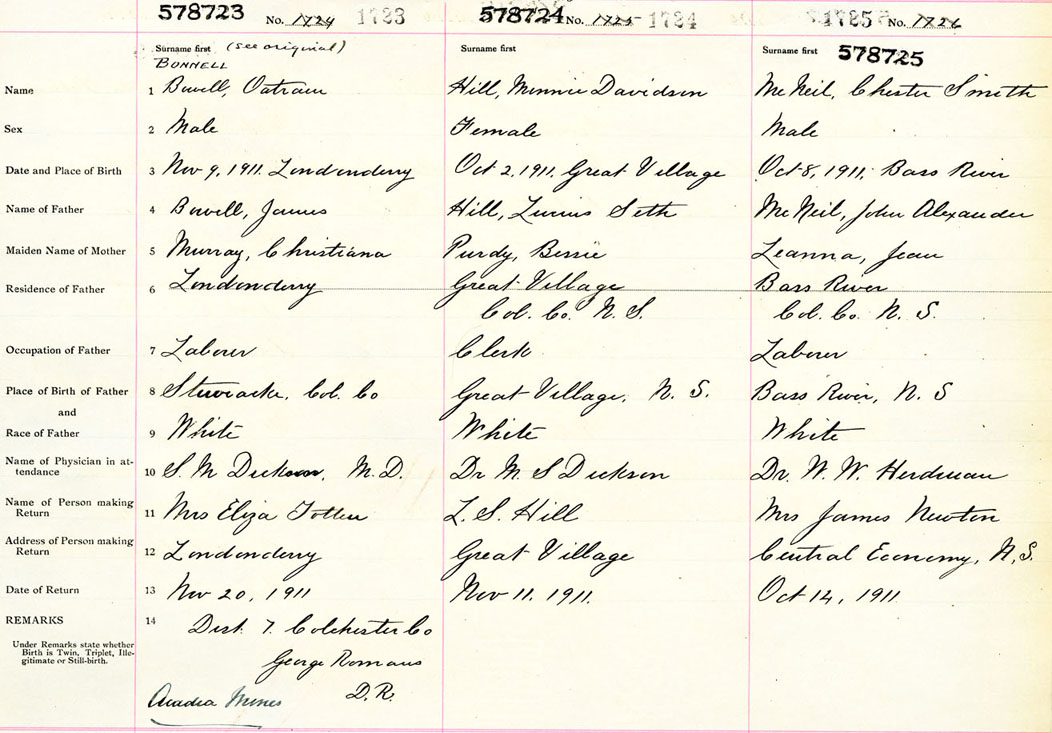 578723 No. 1724 1723 578724 No. 1725 1724 1725 No. 1726
Surname first (see original) Surname first Surname first 578725
BONNELL
Name 1 Bowell, Outram Hill, Minnie Davidson McNeil, Chester Smith
Sex 2 Male Female Male
Date and Place of Birth 3 Nov 9, 1911. Londonderry Oct 2, 1911. Great Village Oct 8, 1911, Bass River
Name of Father 4 Bowell, James Hill, Lurius Seth McNeil, John Alexander
Maiden Name of Mother 5 Murray, Christiana Purdy, Bessie Leanna, Jean
Residence of Father 6 Londonderry Great Village Bass River
Col. Co. N. S. Col. Co. N. S.
Occupation of Father 7 Laborer Clerk Laborer
Place of Birth of Father 8 Stewiacke, Col. Co Great Village, N. S. Bass River, N. S
and
Race of Father 9 White White White
Name of Physician in at-
tendance 10 S. M Dickson, M.D. Dr M. S Dickson Dr. W. W. Herdman
Name of Person making
Return 11 Mrs Eliza Totten L. S. Hill Mrs James Newton
Address of Person making
Return 12 Londonderry Great Village Central Economy, N.S.
Date of Return 13 Nov 20, 1911 Nov 11. 1911. Oct 14, 1911
REMARKS 14 Dist 7. Colchester Co
Under Remarks state whether
Birth is Twin, Triplet, Ille-
gitimate or Still-birth.
George Romans
D.R.
Acadia Mines